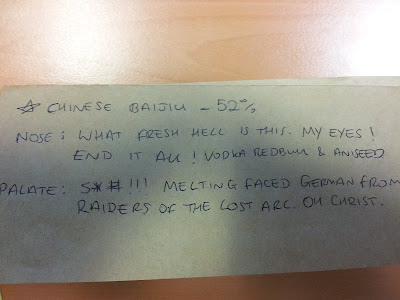 ☆ CHINESE BAIJIU - 52%
NOSE: WHAT FRESH HELL IS THIS. MY EYES!
END IT ALL! VODKA REDBULL & ANISEED
PALATE: S*#!!! MELTING FACED GERMAN FROM
RAIDERS OF THE LOST ARC. OH CHRIST.